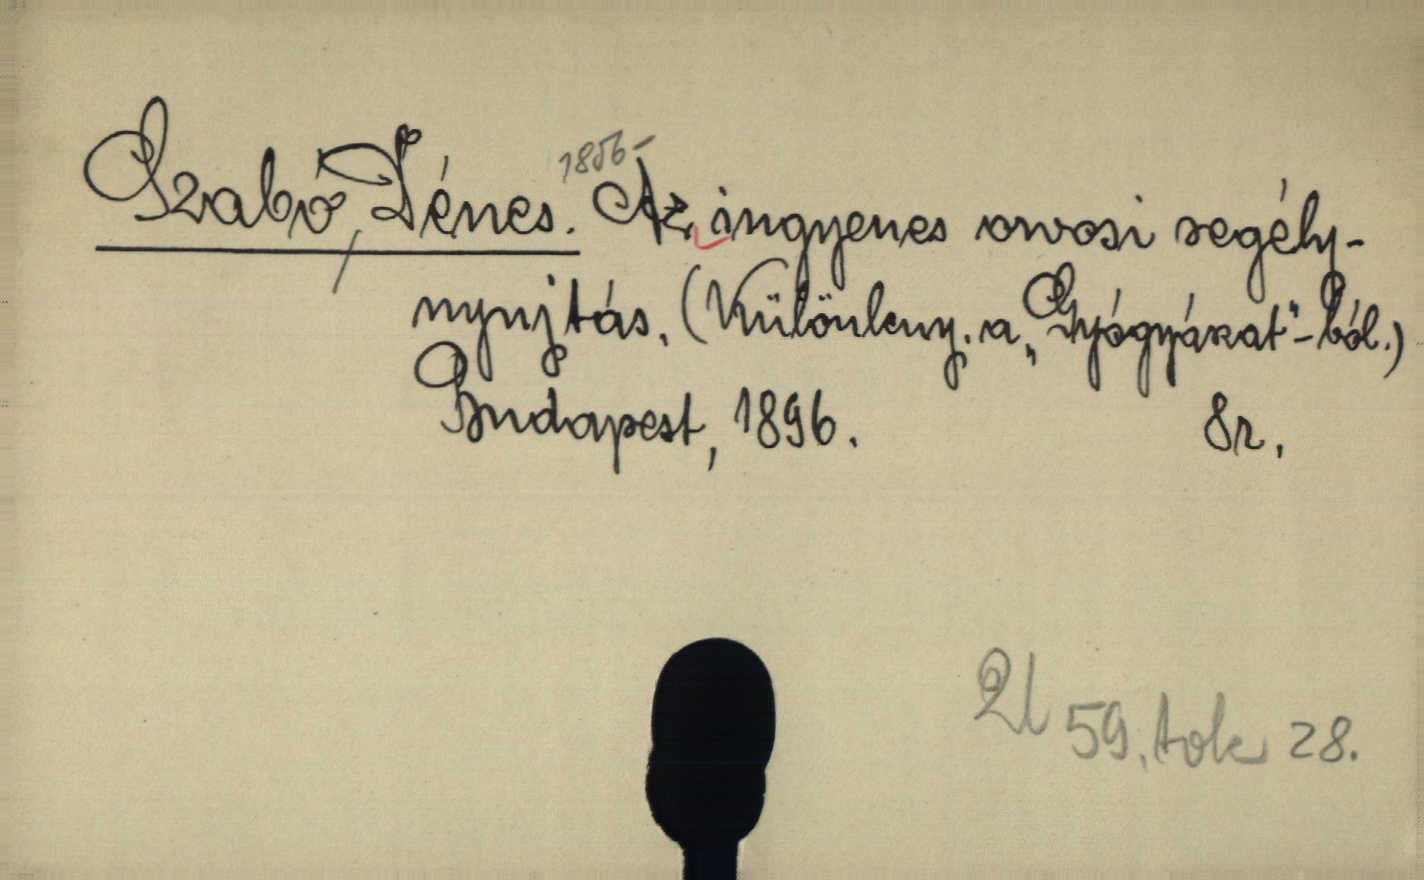 Szabó, Dénes. 1856- Az ingyenes orvosi segély-
nyujtás. (Különleny. a „Gyógyászat"-ból.)
Budapest, 1896. 8r.
59. tok 28.